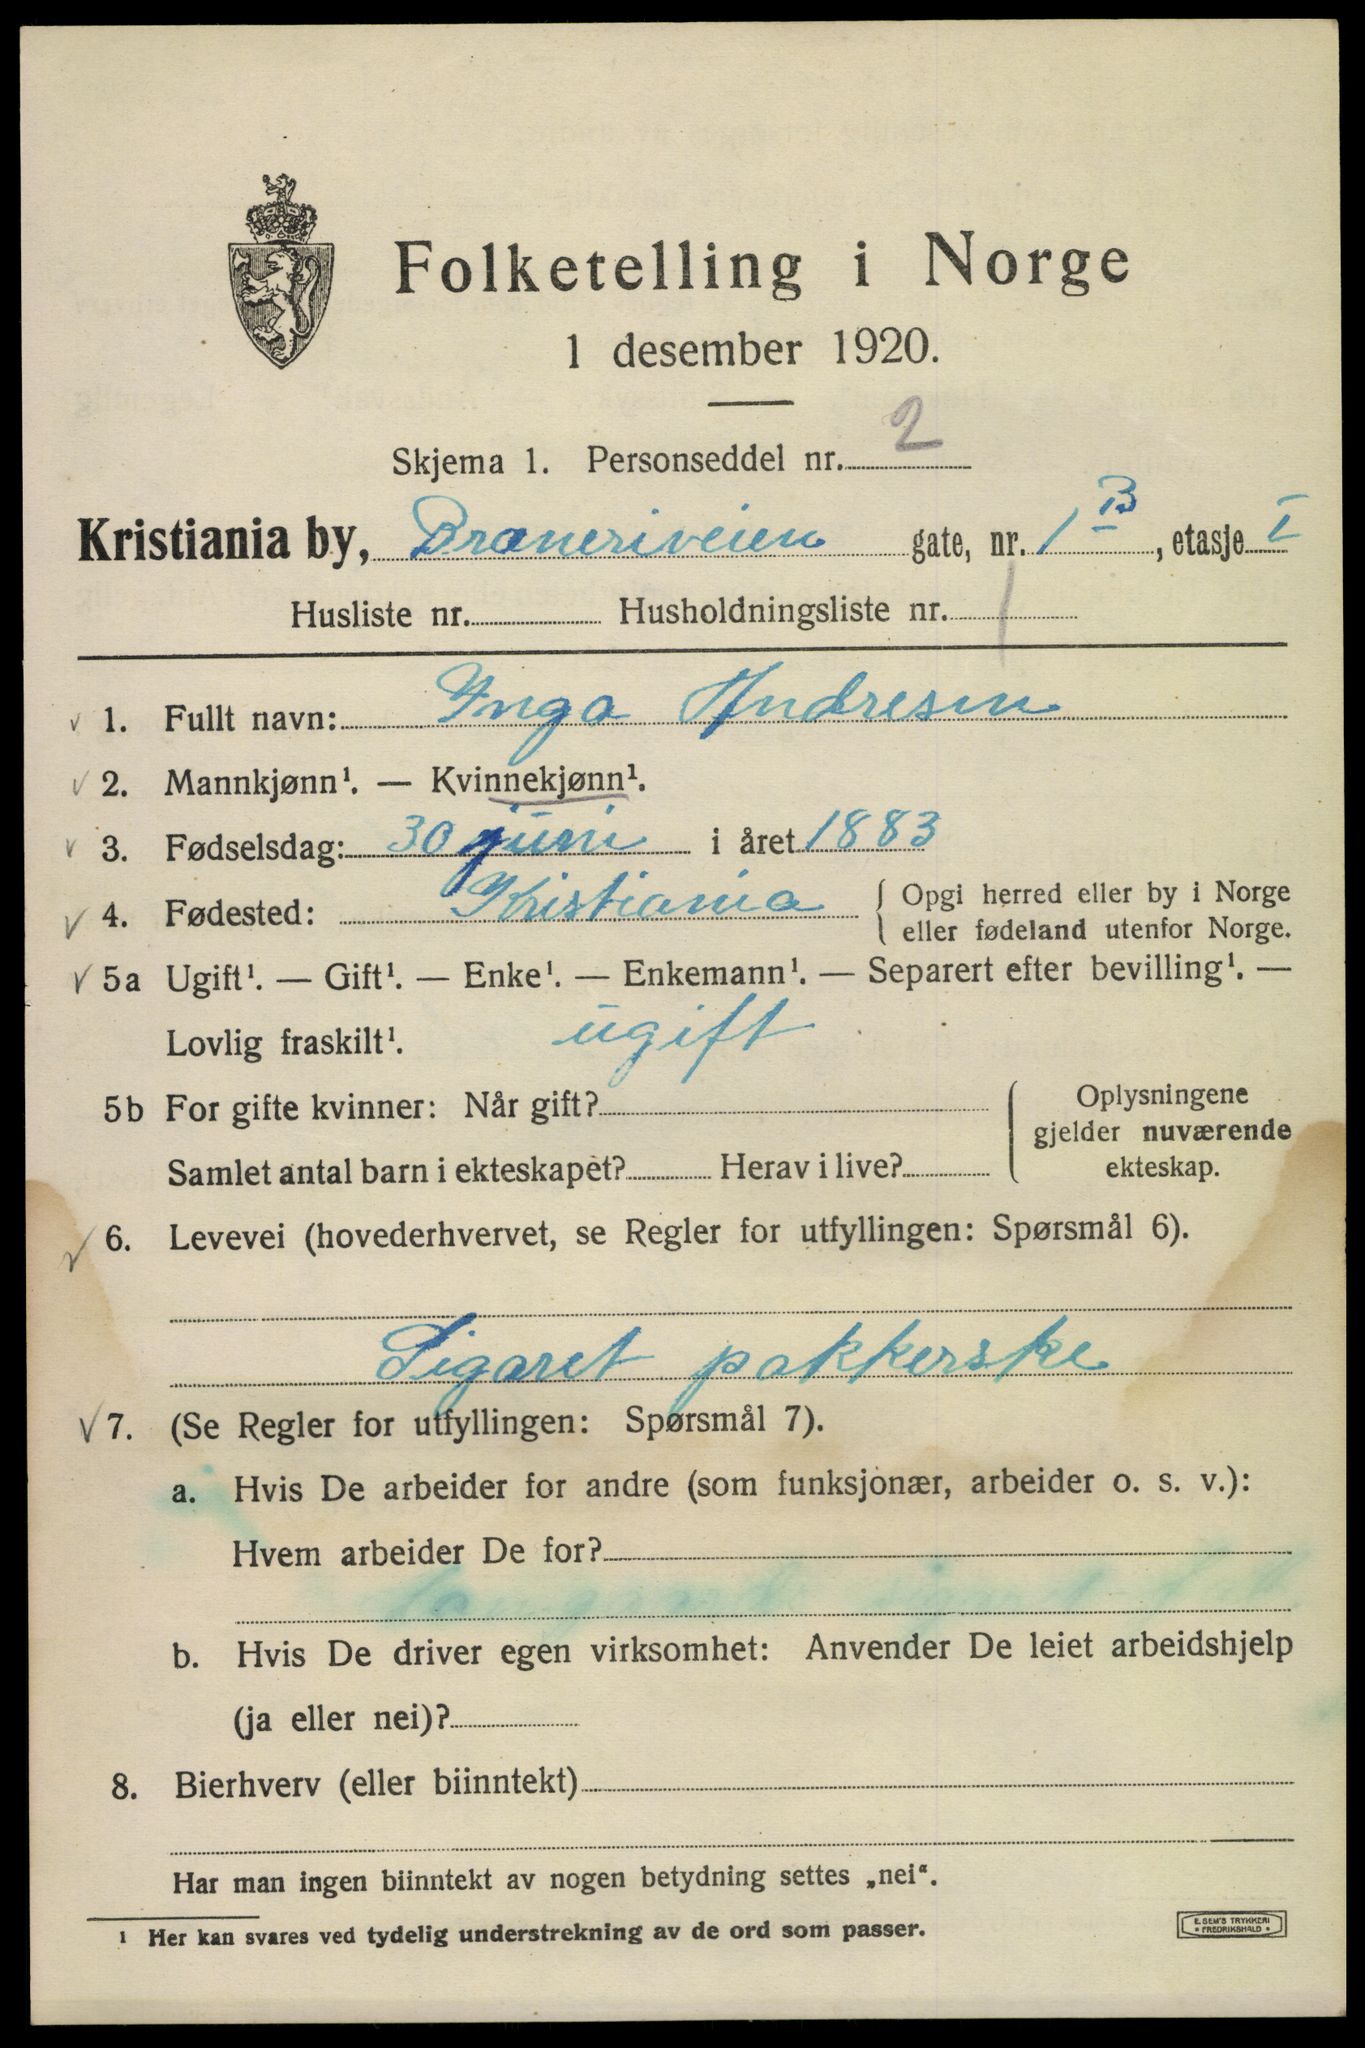 Folketelling i Norge
1 desember 1920.
Skjema 1. Personseddel nr. 2
Kristiania by, Bræneriveien gate, nr. 1 B, etasje I
Husliste nr. Husholdningsliste nr. 1
✓ 1. Fullt navn: Inga Andresen
✓ 2. Mannkjønn¹. — Kvinnekjønn¹.
✓ 3. Fødselsdag: 30 juni i året 1883
✓ 4. Fødested: Kristiania { Opgi herred eller by i Norge
eller fødeland utenfor Norge.
✓ 5a Ugift¹. — Gift¹. — Enke¹. — Enkemann¹. — Separert efter bevilling¹. —
Lovlig fraskilt¹. ugift
5b For gifte kvinner: Når gift?
Samlet antal barn i ekteskapet? Herav i live?
Oplysningene
gjelder nuværende
ekteskap.
✓ 6. Levevei (hovederhvervet, se Regler for utfyllingen: Spørsmål 6).
Sigaret pakkerske
✓ 7. (Se Regler for utfyllingen: Spørsmål 7).
a. Hvis De arbeider for andre (som funksjonær, arbeider o. s. v.):
Hvem arbeider De for?
b. Hvis De driver egen virksomhet: Anvender De leiet arbeidshjelp
(ja eller nei)?
8. Bierhverv (eller biinntekt)
Har man ingen biinntekt av nogen betydning settes „nei“.
¹ Her kan svares ved tydelig understrekning av de ord som passer.
E. SEM'S TRYKKERI
* FREDRIKSHALD *